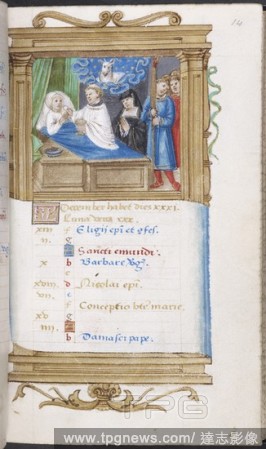 14
December habet dies XXXI.
Luna vero XXX.
xiii f Eligii epi et cfes.
g
A Sancti emundi.
x b Barbare vg.
c
xviii d Nicolai epi.
vii e
f Conceptio bte marie.
xv g
iiii A
b Damasi pape.
TPG
www.tpgnews.com / 達志影像